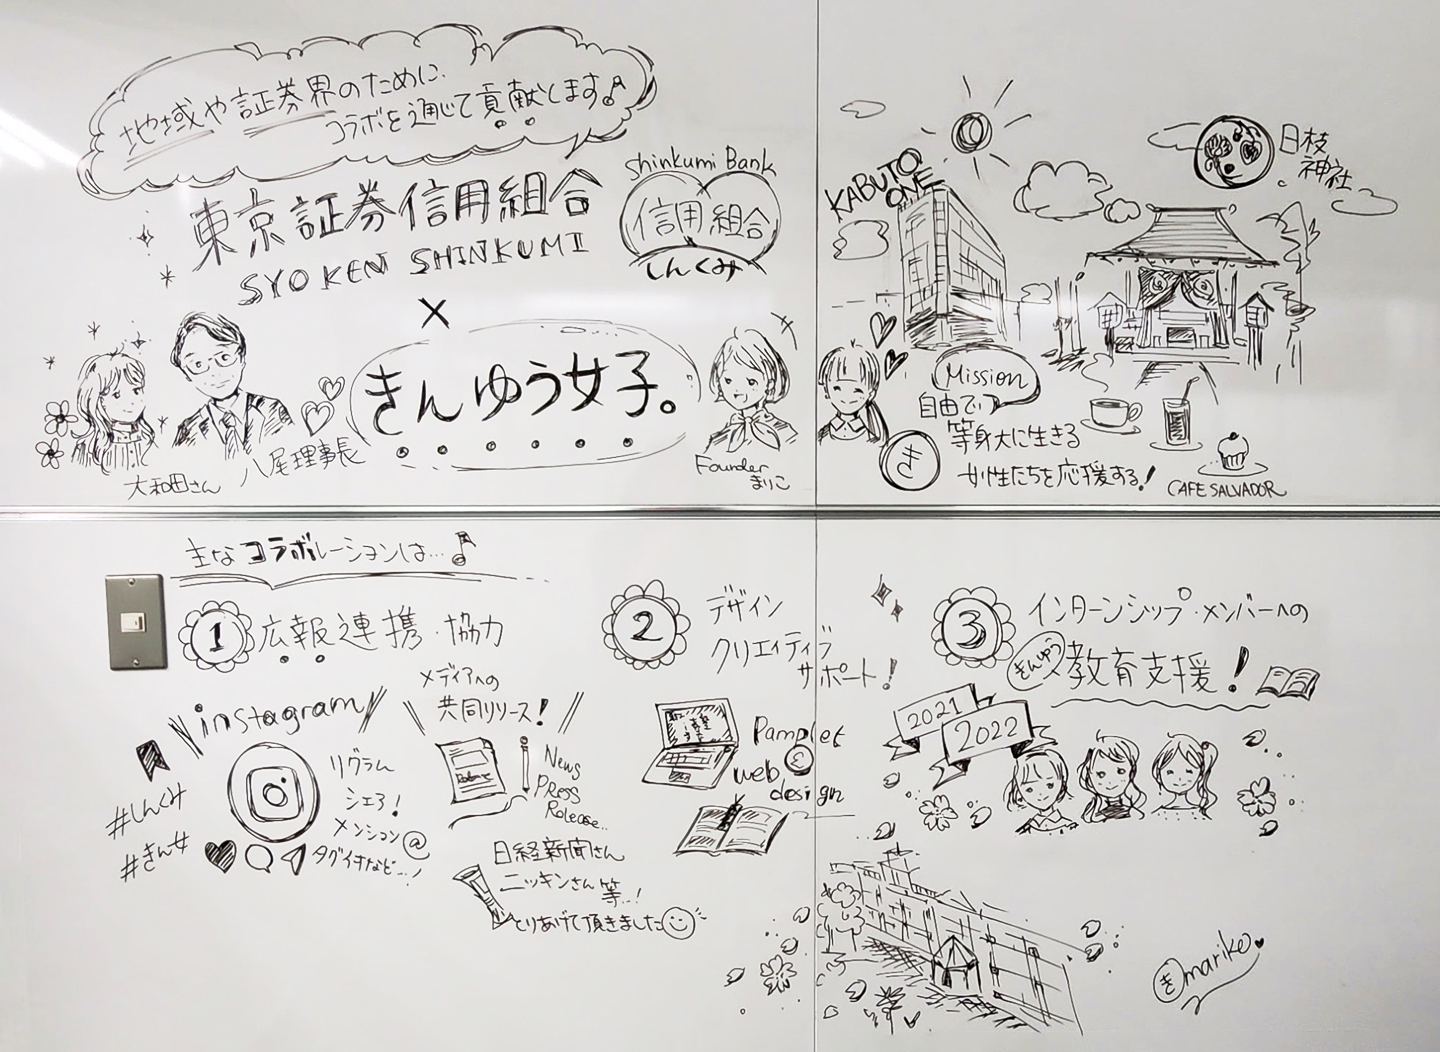 地域や証券界のために、
コラボを通じて貢献します♪
東京証券信用組合
SYOKEN SHINKUMI
Shinkumi Bank
信用組合
しんくみ
×
きんゆう女子。
大和田さん
八尾理事長
Founder
まりこ
KABUTO
ONE
日枝
神社
Mission
自由で、
等身大に生きる
女性たちを応援する!
き
CAFE SALVADOR
主なコラボレーションは…♪
1 広報連携・協力
instagram
#しんくみ
#きん女
リグラム
シェア!
メンション@
タグイキなど…!
メディアへの
共同リリース!
News
PRESS
Release..
日経新聞さん
ニッキンさん等…!
とりあげて頂きました
2 デザイン
クリエイティブ
サポート!
Pamplet
web
design
3 インターンシップ・メンバーへの
きんゆう
教育支援!
2021
2022
き mariko